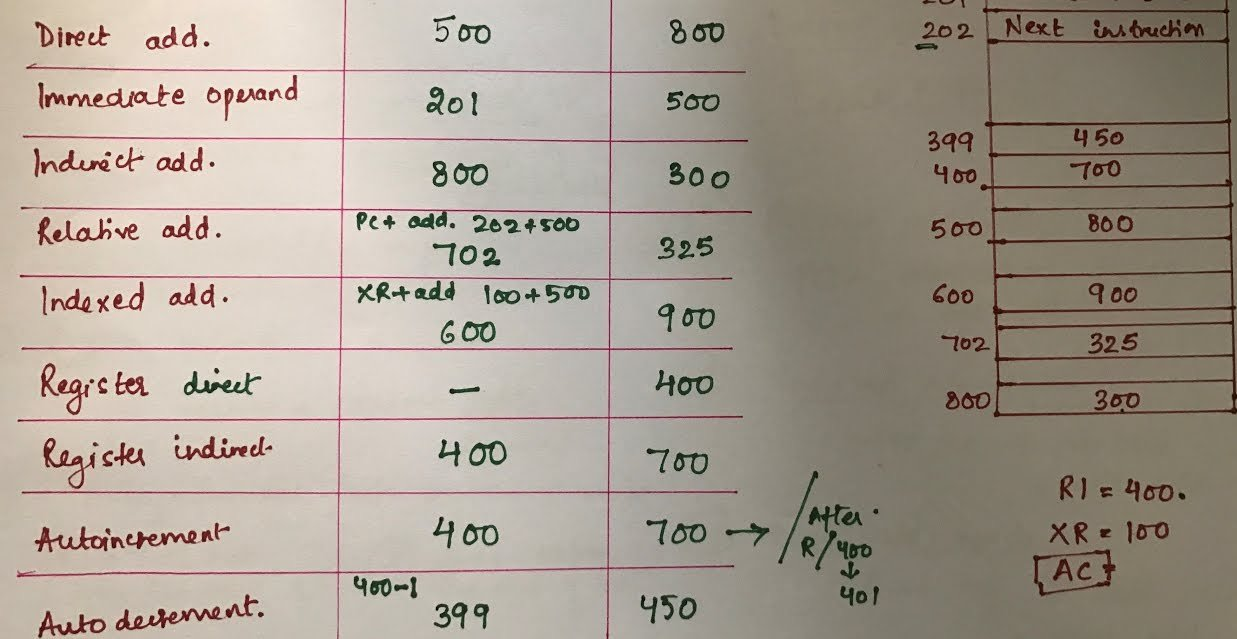 Direct add. 500 800
Immediate operand 201 500
Indirect add. 800 300
Relative add. PC+ add. 202+500
702 325
Indexed add. XR+add 100+500
600 900
Register direct — 400
Register indirect 400 700
Autoincrement 400 700 → / After.
R/400
↓
401
Auto decrement. 400-1
399 450
201
202 Next instruction
399 450
400 700
500 800
600 900
702 325
800 300
R1 = 400.
XR = 100
AC